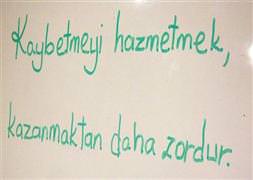 Kaybetmeyi hazmetmek,
kazanmaktan daha zordur.